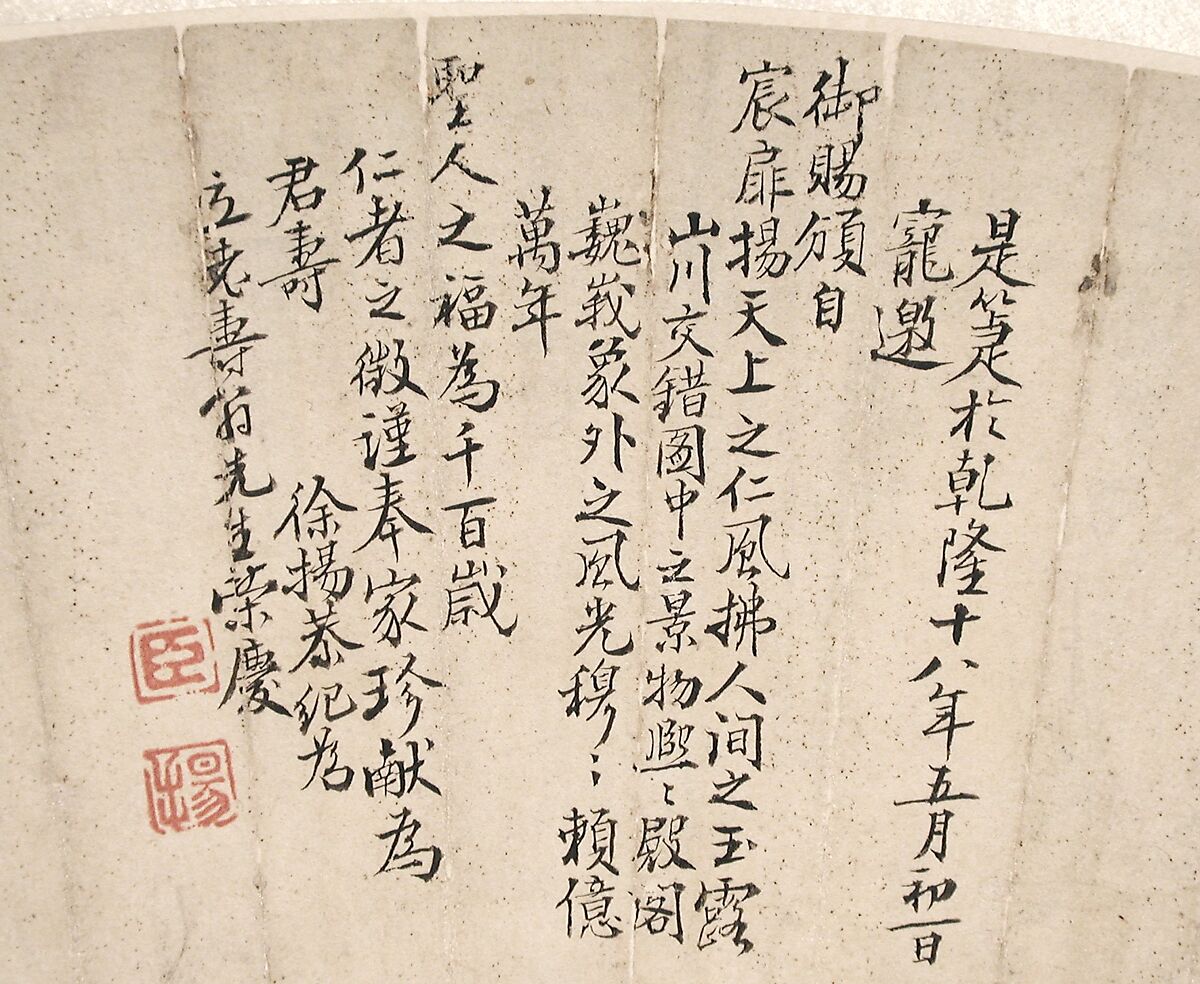 是箑於乾隆十八年五月初一日
寵邀
御賜頒自
宸扉揚天上之仁風拂人间之玉露
山川交錯圖中之景物熈〻殿阁
巍峩象外之風光穆〻賴億
萬年
聖人之福為千百歲
仁者之徵謹奉家珍献為
君壽
徐揚恭纪为
立尧壽翁先生荣慶
臣
揚